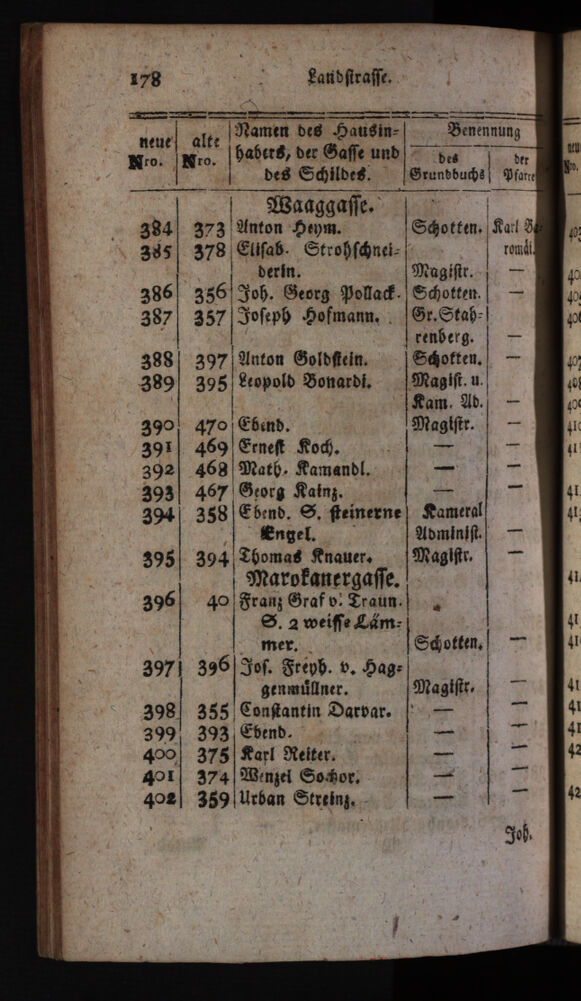 178 Landstrasse.
neue Nro. | alte Nro. | Namen des Hausin= | Benennung
habers, der Gasse und | des | der
des Schildes. | Grundbuchs | Pfarre
Waaggasse.
384 | 373 | Anton Heym. | Schotten. | Karl Bo
385 | 378 | Elisab. Strohschnei= | romäi.
derin. | Magistr. | —
386 | 356 | Joh. Georg Pollack. | Schotten. | —
387 | 357 | Joseph Hofmann. | Gr. Stah=
renberg. | —
388 | 397 | Anton Goldstein. | Schotten. | —
389 | 395 | Leopold Bonardi. | Magist. u.
Kam. Ad. | —
390 | 470 | Ebend. | Magistr. | —
391 | 469 | Ernest Koch. | — | —
392 | 468 | Math. Kamandl. | — | —
393 | 467 | Georg Kainz. | — | —
394 | 358 | Ebend. S. steinerne | Kameral
Engel. | Administ. | —
395 | 394 | Thomas Knauer. | Magistr. | —
Marokanergasse.
396 | 40 | Franz Graf v. Traun.
S. 2 weisse Läm=
mer. | Schotten. | —
397 | 396 | Jos. Freyh. v. Hag=
genmüllner. | Magistr. | —
398 | 355 | Constantin Darvar. | — | —
399 | 393 | Ebend. | — | —
400 | 375 | Karl Reiter. | — | —
401 | 374 | Wenzel Sochor. | — | —
402 | 359 | Urban Streinz. | — | —
Joh.